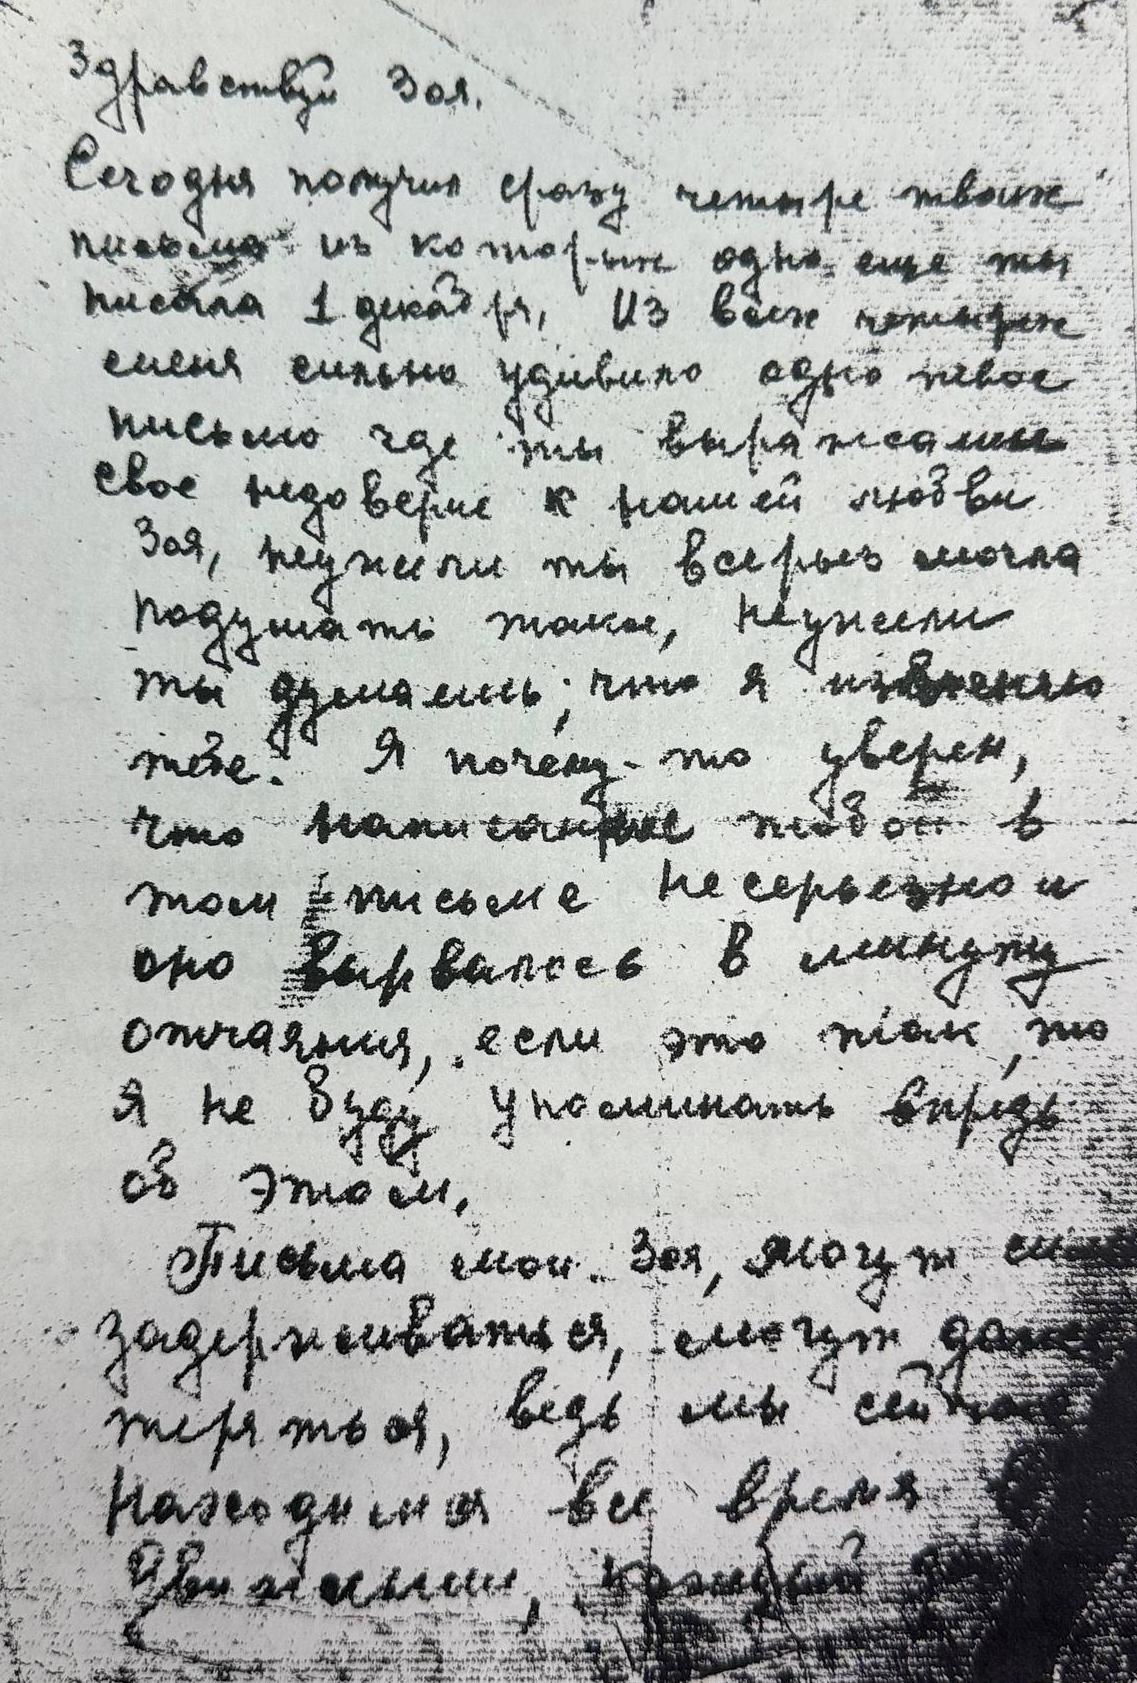 Здравствуй Зоя.
Сегодня получил сразу четыре твоих
письма из которых одно еще ты
писала 1 декабря, Из всех четырех
меня сильно удивило одно твое
письмо где ты выражаешь
свое недоверие к нашей любви
Зоя, неужели ты всерьез могла
подумать такое, неужели
ты думаешь, что я изменяю
тебе. Я почему-то уверен,
что написанное тобой в
том письме несерьезно и
оно вырвалось в минуту
отчаяния, если это так, то
я не буду упоминать впредь
об этом.
Письма мои. Зоя, могут
задерживаться, могут даже
теряться, ведь мы сейчас
находимся все время в
движении, каждый